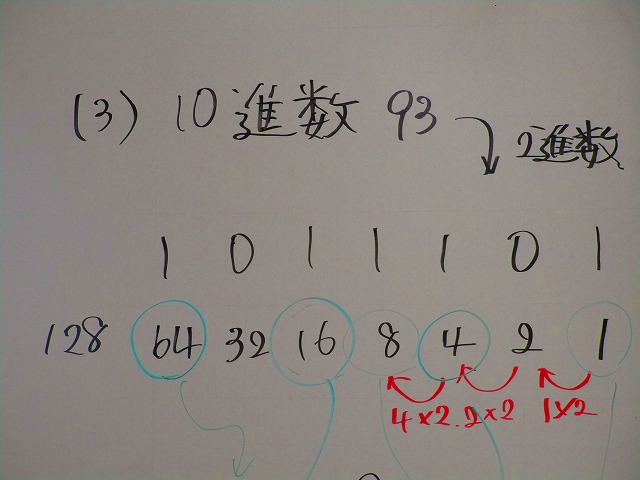 (3) 10進数 93
2進数
1 0 1 1 1 0 1
128 64 32 16 8 4 2 1
4×2.2×2 1×2